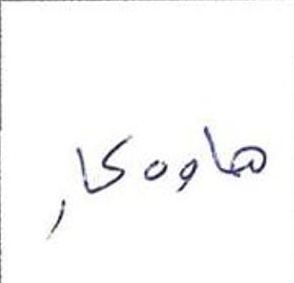 هاوەکار